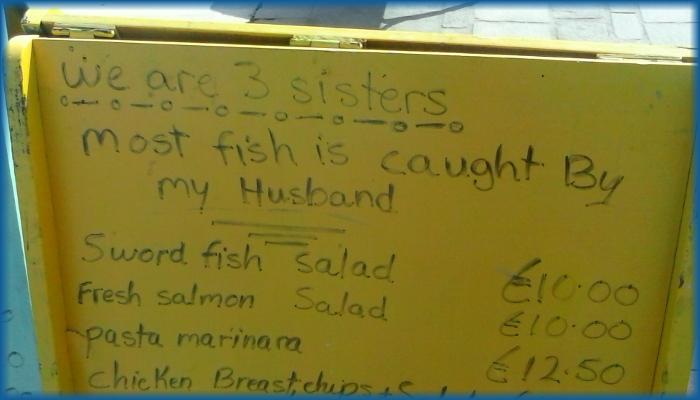 we are 3 sisters
most fish is caught By
my Husband
Sword fish salad €10.00
Fresh salmon Salad €10.00
pasta marinara €12.50
chicken Breast, chips +